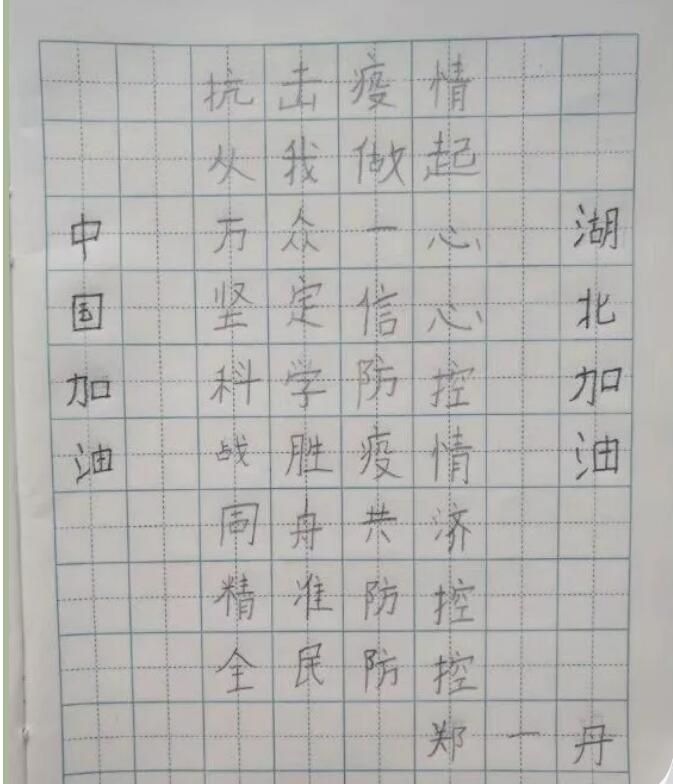 抗击疫情
从我做起
万众一心
坚定信心
科学防控
战胜疫情
同舟共济
精准防控
全民防控
中国加油
湖北加油
郑一丹